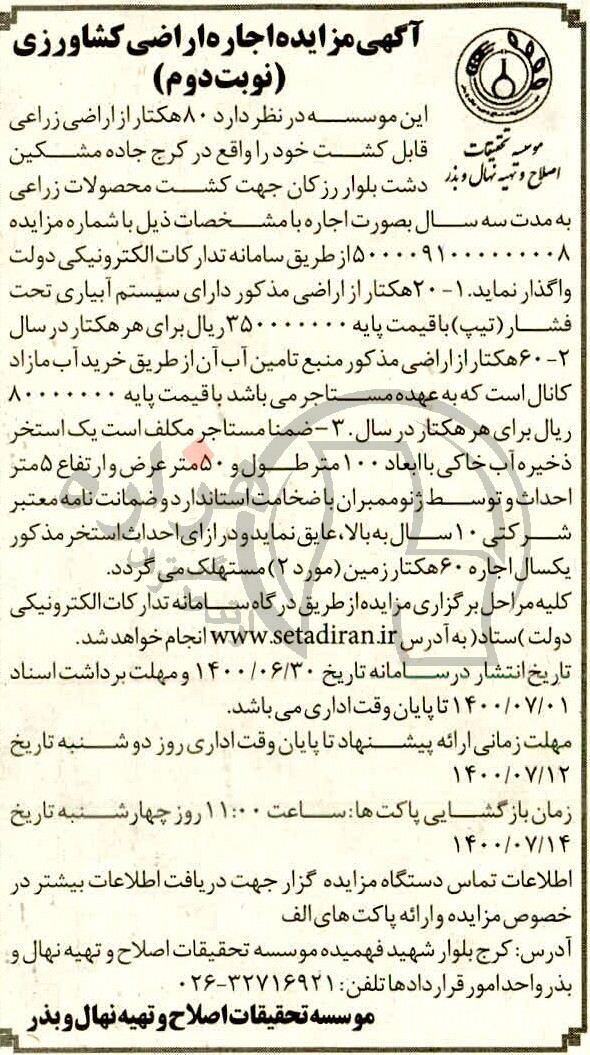 آگهی مزایده اجاره اراضی کشاورزی
(نوبت دوم)
موسسه تحقیقات
اصلاح و تهیه نهال و بذر
این موسسه در نظر دارد ۸۰ هکتار از اراضی زراعی
قابل کشت خود را واقع در کرج جاده مشکین
دشت بلوار رزکان جهت کشت محصولات زراعی
به مدت سه سال بصورت اجاره با مشخصات ذیل با شماره مزایده
۵۰۰۰۰۹۱۰۰۰۰۰۰۰۰۸ از طریق سامانه تدارکات الکترونیکی دولت
واگذار نماید. ۱- ۲۰ هکتار از اراضی مذکور دارای سیستم آبیاری تحت
فشار (تیپ) با قیمت پایه ۳۵۰۰۰۰۰۰۰ ریال برای هر هکتار در سال
۲- ۶۰ هکتار از اراضی مذکور منبع تامین آب آن از طریق خرید آب مازاد
کانال است که به عهده مستاجر می باشد با قیمت پایه ۸۰۰۰۰۰۰۰
ریال برای هر هکتار در سال. ۳- ضمنا مستاجر مکلف است یک استخر
ذخیره آب خاکی با ابعاد ۱۰۰ متر طول و ۵۰ متر عرض و ارتفاع ۵ متر
احداث و توسط ژئوممبران با ضخامت استاندارد و ضمانت نامه معتبر
شرکتی ۱۰ سال به بالا، عایق نماید و در ازای احداث استخر مذکور
یکسال اجاره ۶۰ هکتار زمین (مورد ۲) مستهلک می گردد.
کلیه مراحل برگزاری مزایده از طریق درگاه سامانه تدارکات الکترونیکی
دولت (ستاد) به آدرس www.setadiran.ir انجام خواهد شد.
تاریخ انتشار در سامانه تاریخ ۱۴۰۰/۰۶/۳۰ و مهلت برداشت اسناد
۱۴۰۰/۰۷/۰۱ تا پایان وقت اداری می باشد.
مهلت زمانی ارائه پیشنهاد تا پایان وقت اداری روز دو شنبه تاریخ
۱۴۰۰/۰۷/۱۲
زمان بازگشایی پاکت ها: ساعت ۱۱:۰۰ روز چهارشنبه تاریخ
۱۴۰۰/۰۷/۱۴
اطلاعات تماس دستگاه مزایده گزار جهت دریافت اطلاعات بیشتر در
خصوص مزایده و ارائه پاکت های الف
آدرس: کرج بلوار شهید فهمیده موسسه تحقیقات اصلاح و تهیه نهال و
بذر واحد امور قراردادها تلفن: ۳۲۷۱۶۹۲۱-۰۲۶
موسسه تحقیقات اصلاح و تهیه نهال و بذر